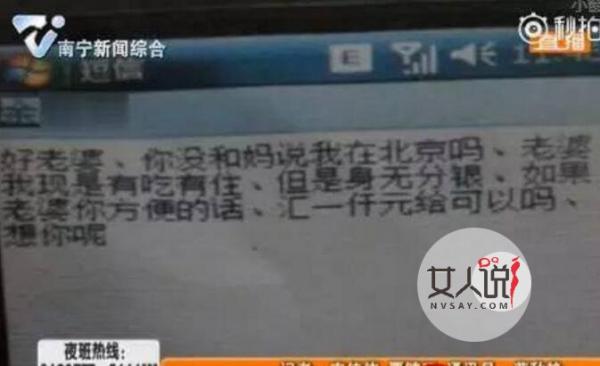 南宁新闻综合
秒拍
直播
短信
E
好老婆、你没和妈说我在北京吗、老婆
我现是有吃有住、但是身无分银、如果
老婆你方便的话、汇一仟元给可以吗、
想你呢
女人说
NVSAY.COM
夜班热线：